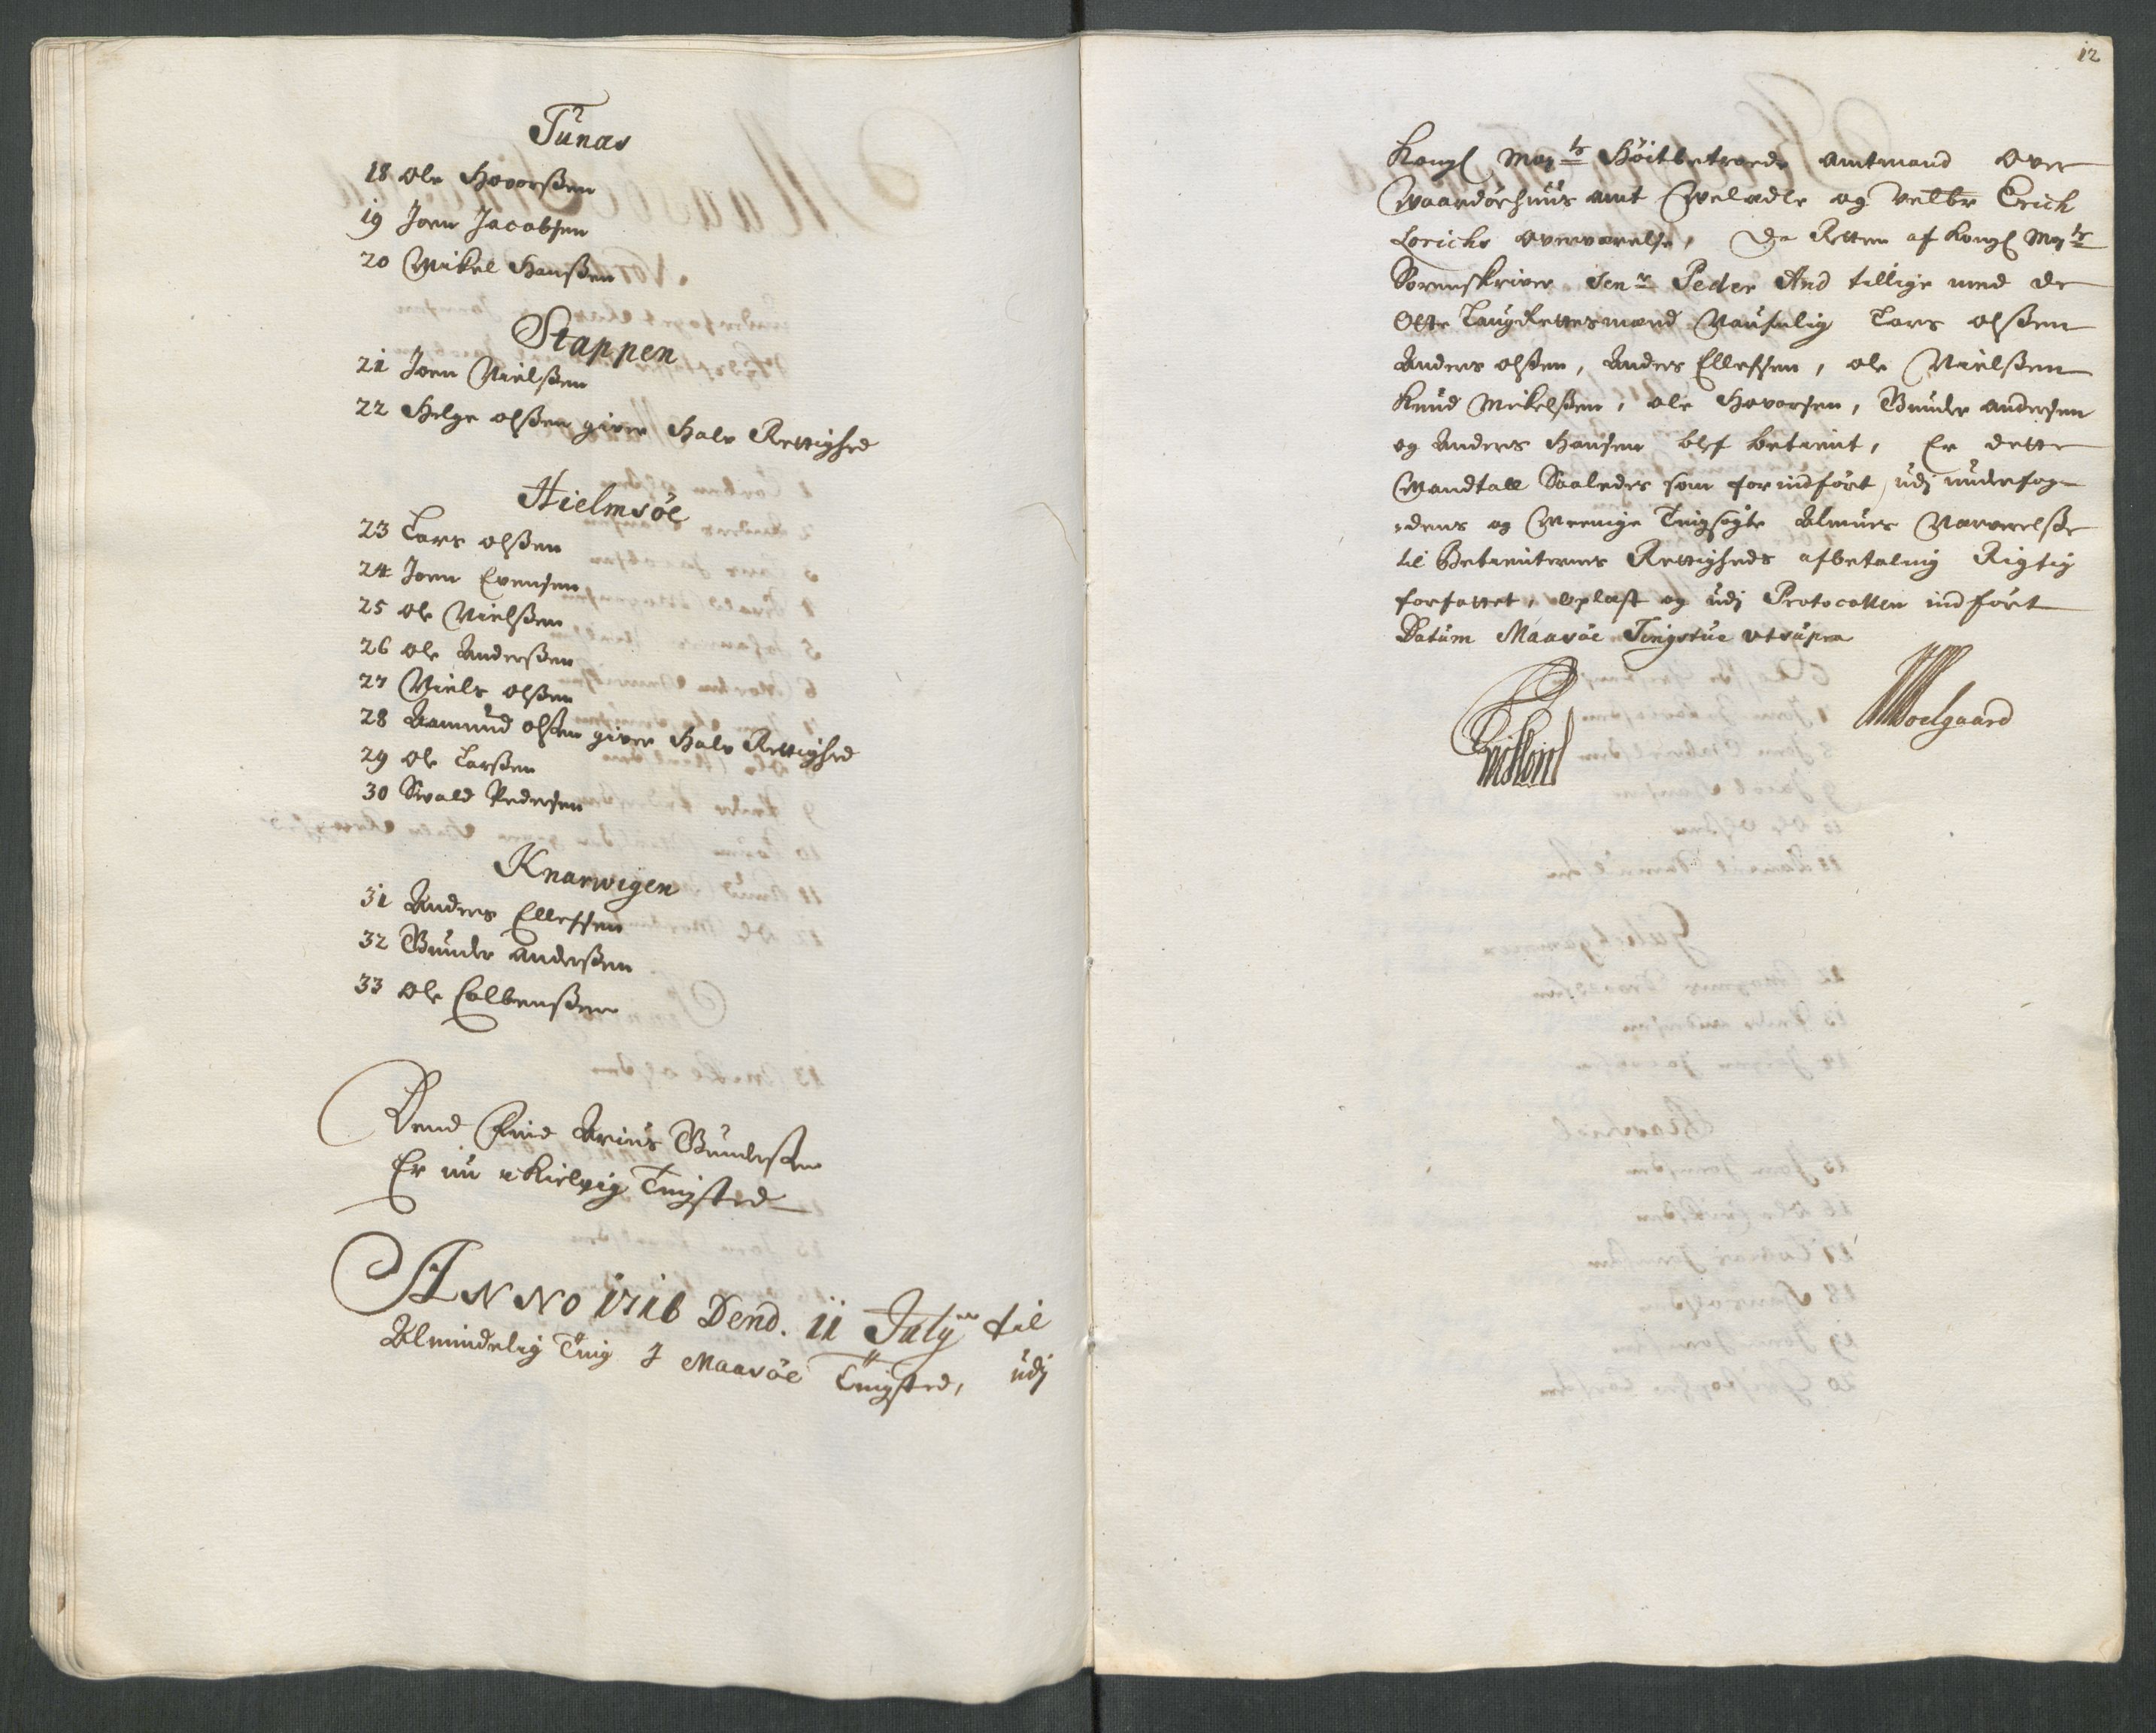 Tunas
18 Ole Hovorßen
19 Joen Jacobsen
20 Mikel Hanßen
Stappen
21 Joen Nielßen
22 Helge olßen giver Halv Rettighed
Hielmsöe
23 Lars olßen
24 Joen Evensen
25 Ole Nielßen
26 Ole Anderßen
27 Niels olßen
28 Aamund olßen giver Halv Rettighed
29 Ole Larßen
30 Sivald Pedersen
Knarwigen
31 Anders Ellefsen
32 Bunde anderßen
33 Ole Colbenßen
Dend Arius Bundeßen
Er nu i Kielvig Tingsted
ANNO 1716 Dend. 11 July til
Almindelig Ting J Maasöe Tingsted, udj
12
Kongl May ts Höitbetroede Amtmand over
Waardöehuus amt Welædle og velbr Erich
Lorichs overværelse, Da Retten af Kongl May ts
Sorenskriver Sen r Peder And tillige med de
Otte LaugRettesmænd Naunlig Lars olßen
Anders olßen, Anders Ellefsen, ole Nielßen
Knud Mikelßen, ole Hovorsen, Bunde andersen
og Anders Hansen blef betient, Er dette
Mandtall Saaledes som for indfört, udj underfog-
dens og Meenige Tingsögte Almues Nærverelße
til Betienternes Rettigheds afbetaling Rigtig
forfattet, oplæst og udj Protocollen indfört
Datum Maasöe Tingstue utsupra